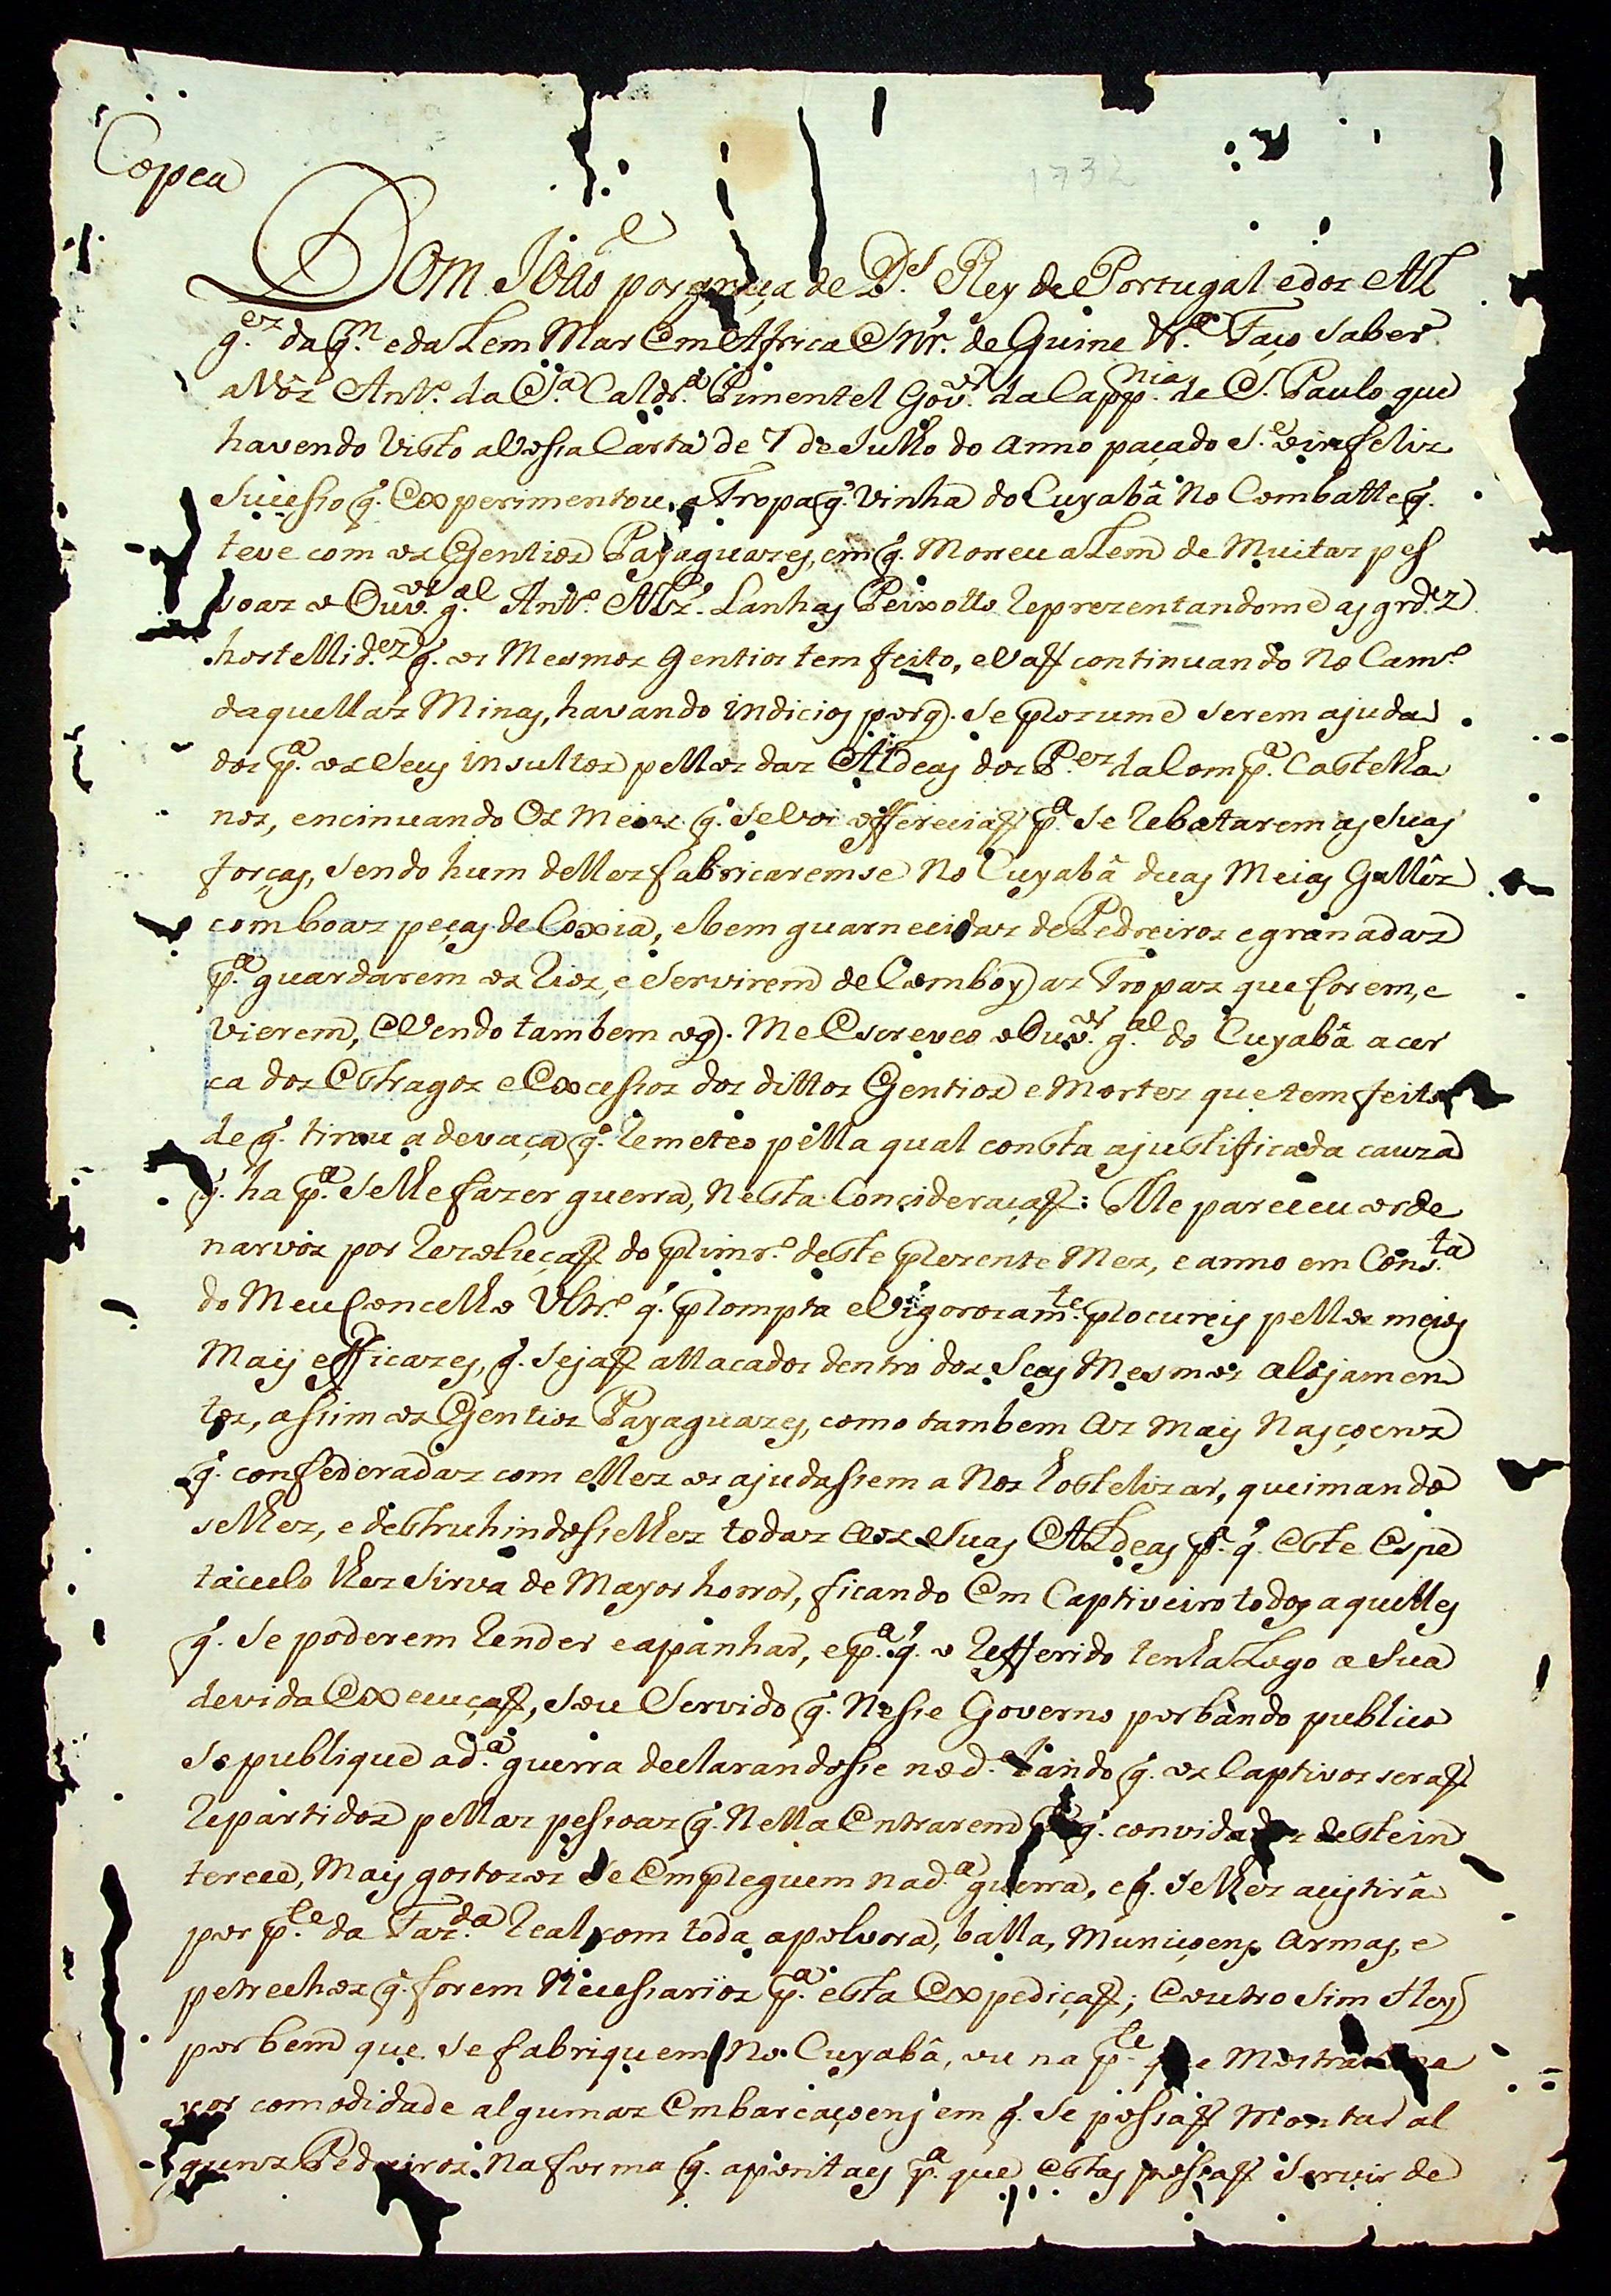 Copea
1732
Dom João por graça de D.s Rey de Portugal e dos Al
g.es da q.m e da Lem Mar em Africa Snr. de Guine &.a Faço saber
a vós Ant.o da S.a Cald.a Pimentel Gov.or da Capp.nia de S. Paulo que
havendo visto a vossa Carta de 7 de Julho do anno paçado s.e o infeliz
sucesso q. experimentou a Tropa q. vinha do Cuyabâ no Combatte q.
teve com os Gentios Payaguazes, em q. Morreu a Lem de Muitas pes
soas o Ouv.or g.al Ant.o Alz. Lanhas Peixotto Reprezentandome as grd.es
hostellid.es q. os Mesmos Gentios tem feito, e vaõ continuando no Cam.o
daquellas Minas, havando indicios porq. se prezume serem ajuda
dos p.a os seus insultos pellos das Aldeas dos P.es da Comp.a Castelha
nos, encinuando os Meios q. se vos offereciaõ p.a se Rebatarem as suas
forças, sendo hum delles fabricaremse no Cuyabâ duas Meias Gallês
com boas peças de Coxia, e bem guarnecidas de Pedreiros e granadas
p.a guardarem os Rios, e servirem de Comboy as Tropas que forem, e
vierem, e vendo tambem oq. me escreveo o Ouv.or g.al do Cuyabâ acer
ca dos estragos e excessos dos dittos Gentios e Mortes que tem feito
de q. tirou a devaça q. Remeteo pella qual consta ajustificada cauza
q. ha p.a selhe fazer guerra, nesta Concideraçaõ: Me pareceu orde
narvos por Rezoluçaõ do primr.o deste prezente Mez, e anno em Cons.ta
do Meu Concelho Ultr.o q. prompta e vigorozam.te procureis pellos meios
Mais efficazes, q. sejaõ attacados dentro dos seus Mesmos alojamen
tos, assim os Gentios Payaguazes, como tambem as mais Nasçoens
q. confederadas com elles os ajudassem a nos hostelizar, queimando
selhes, e destruhindosselhes todas as suas Aldeas p.a q. este espe
taculo lhes sirva de Mayor horror, ficando em Captiveiro todos aquelles
q. se poderem Render e apanhar, e p.a q. o Refferido tenha Logo a sua
devida execuçaõ, sou servido q. nesse Governo por bando publico
se publique a d.a guerra declarandosse no d.o bando q. os Captivos seraõ
Repartidos pellas pessoas q. nella entrarem p.a q. convidados deste in
terece, Mais gostozos se empleguem na d.a guerra, e q. selhes acistirâ
por p.te da Faz.da Real com toda a polvora, balla, Muniçoens Armas, e
petrechos q. forem Necessarios p.a esta expediçaõ; e outro sim Hey
por bem que se fabriquem no Cuyabâ, ou na p.te q. se Mostrar ma
yor comodidade algumas embarcaçoens em q. se possaõ Montar al
guns Pedreiros na forma q. apontaes p.a que estas possaõ servir de